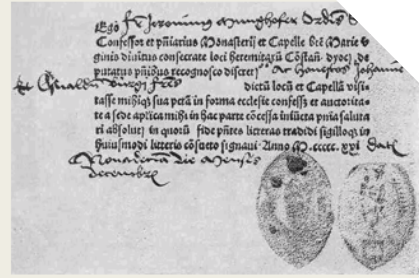 Ego fr Jeronimus Munghofer Ordis S
Confessor et pñiarius Monasterij et Capelle btē Marie v
ginis diuinitus consecrate loci heremitarū Cōstañ. dyoc̄. de
putatus pñibus recognosco discret Ac honestos Johanne
et fres dictū locū et Capellā visi
tasse mihiq̄ sua pctā in forma ecclesie confessos et auctorita
te a sede aplica mihi in hac parte cōcessa iniūcta pnia saluta
ri absolui in quorū fide pñtes litteras tradidi sigilloq̄ in
huiusmodi litteris cōsueto signaui Anno M.ccccc.xxj dat
die Mensis
decembr